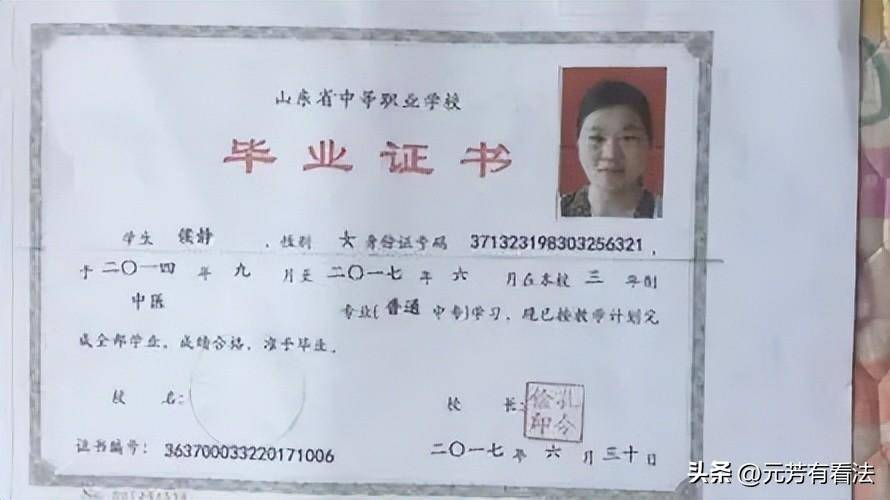 山东省中等职业学校
毕业证书
学生 侯静 ,性别 女 身份证号码 371323198303256321,
于 二〇一四 年 九 月至 二〇一七 年 六 月在本校 三 年制
中医 专业(普通 中专)学习,现已按教学计划完
成全部学业,成绩合格,准予毕业。
校 名: 校 长: 孔令俭印
证书编号: 363700033220171006 二〇一七 年 六 月 三十 日
头条 @元芳有看法